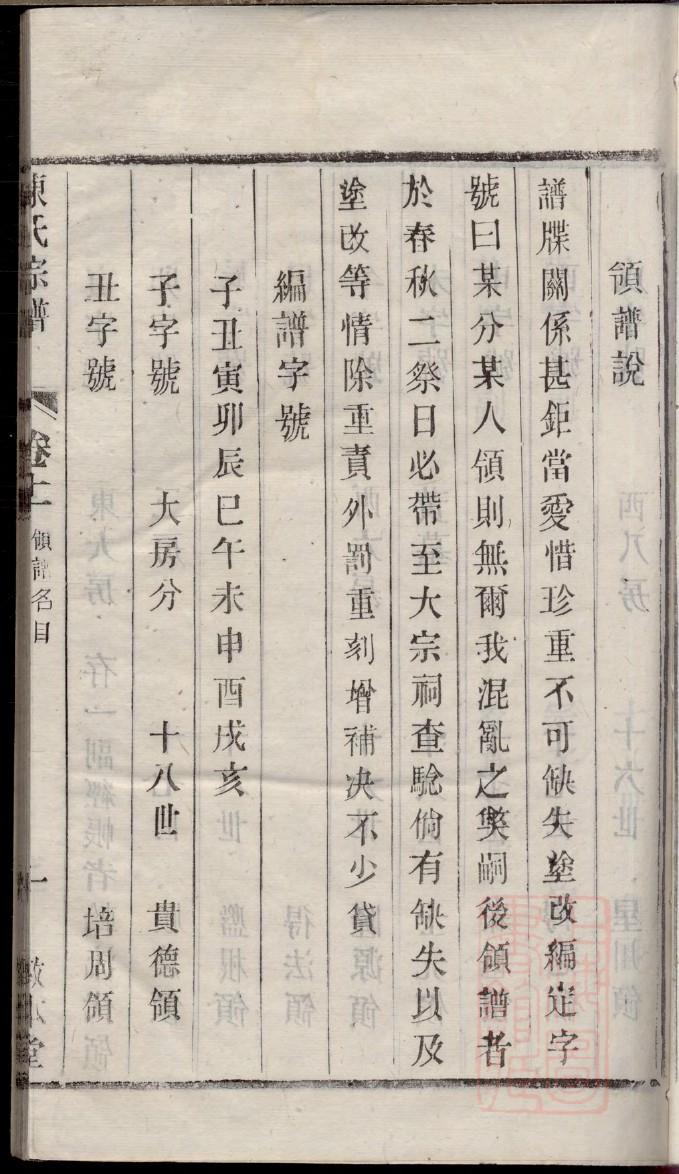 領譜說
譜牒關係甚鉅當愛惜珍重不可缺失塗改編定字
號曰某分某人領則無爾我混亂之獘嗣後領譜者
於春秋二祭日必帶至大宗祠查騐倘有缺失以及
塗改等情除重責外罰重刻增補决不少貸
編譜字號
子丑寅卯辰巳午未申酉戌亥
子字號 大房分 十八世 貴德領
丑字號 培周領
陳氏宗譜 卷上 領譜名目 一 敘本堂